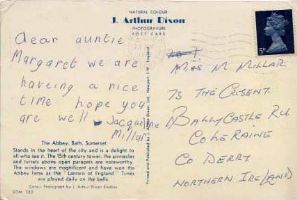 NATURAL COLOUR
J. Arthur Dixon
PHOTOGRAVURE
POST CARD
Dear auntie
Margaret we are
haveing a nice
time hope you
are well Jacqueline
Millar
Miss M MILLAR
75 THE CRESENT.
BALLYCASTLE RD
COLERAINE
CO DERRY
NORTHERN IRELAND
The Abbey, Bath, Somerset
Stands in the heart of the city and is a delight to
all who see it. The 15th century tower, the pinnacles
and turrets above open parapets are noteworthy.
The windows are magnificent and have won the
Abbey fame as the "Lantern of England". Tunes
are played daily on the bells.